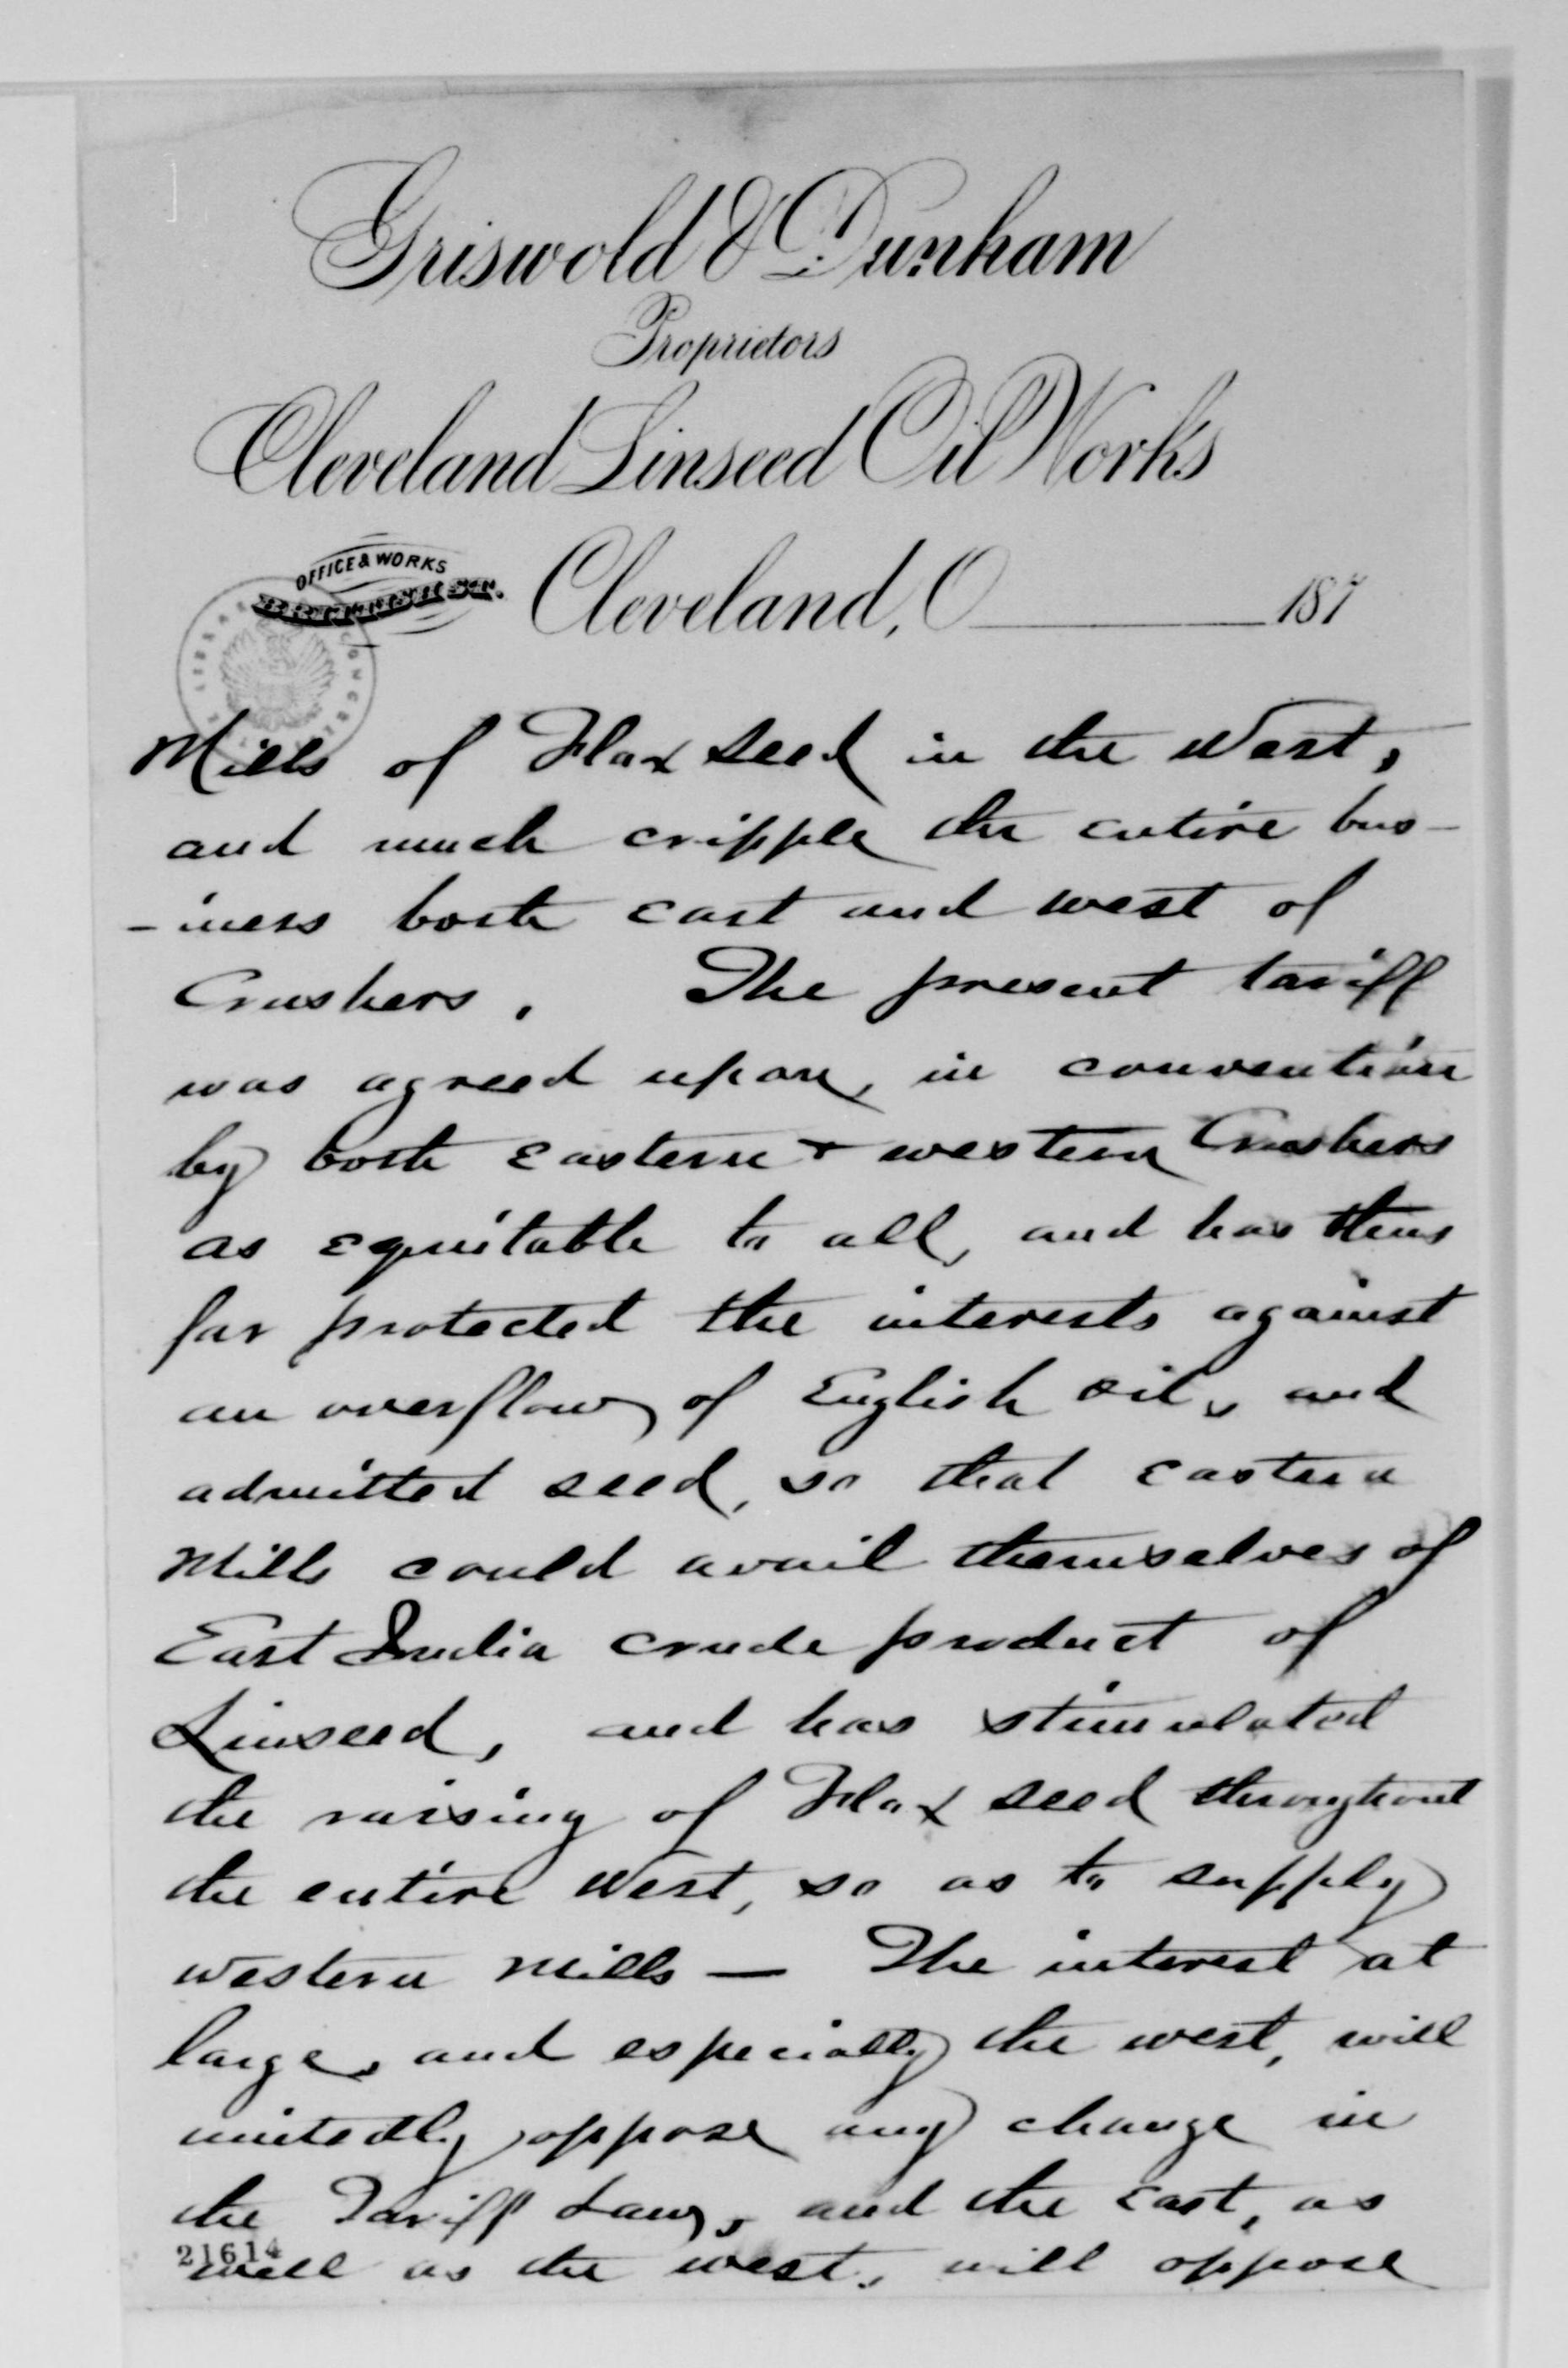 Griswold & Dunham
Proprietors
Cleveland Linseed Oil Works
OFFICE & WORKS
Cleveland, O 187
Mills of Flax seed in the West,
and much cripple the entire bus-
-iness both east and west of
Crushers. The present tariff
was agreed upon, in convention
by both eastern & western Crushers
as equitable to all, and has thus
far protected the interests against
an overflow of English oil, and
admitted seed, so that eastern
Mills could avail themselves of
East India crude product of
Linseed, and has stimulated
the raising of Flax seed throughout
the entire West, so as to supply
western Mills — The interest at
large, and especially the west, will
unitedly oppose any change in
the Tariff Laws, and the East, as
21614
well as the west, will oppose